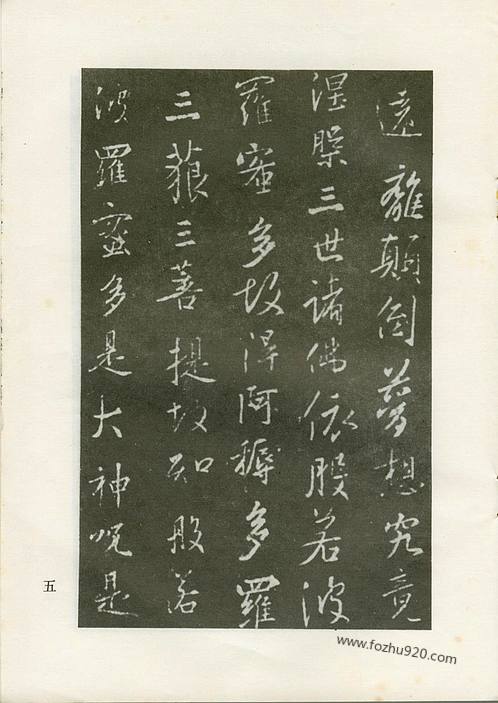 遠離顛倒夢想究竟
涅槃三世諸佛依般若波
羅蜜多故得阿耨多羅
三藐三菩提故知般若
波羅蜜多是大神呪是
五
www.fozhu920.com